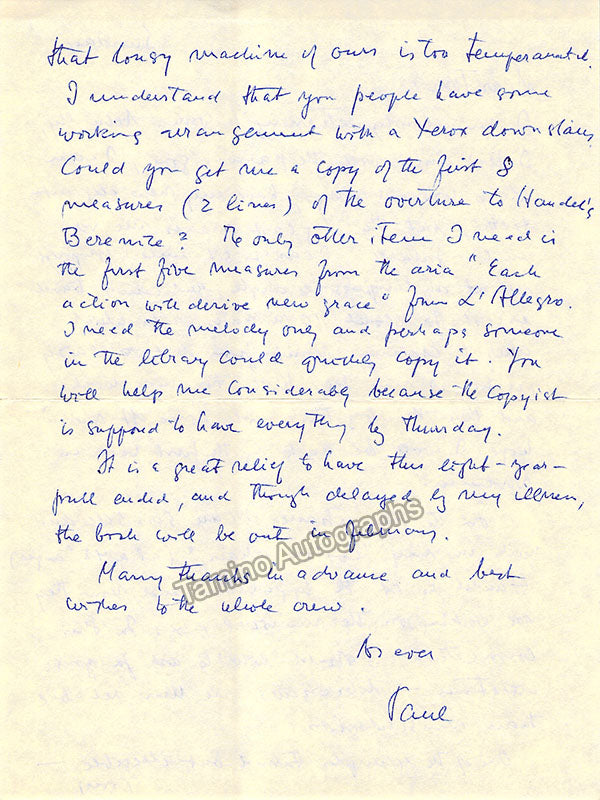 that lousy machine of ours is too temperamental.
I understand that you people have some
working arrangement with a Xerox downstairs.
Could you get me a copy of the first 8
measures (2 lines) of the overture to Handel's
Berenice? The only other item I need is
the first five measures from the aria "Each
action will derive new grace" from L'Allegro.
I need the melody only and perhaps someone
in the library could quickly copy it. You
will help me considerably because the Copyist
is supposed to have everything by Thursday.
It is a great relief to have this eight-year-
pull ended, and though delayed by my illness,
the book will be out in February.
Many thanks in advance and best
wishes to the whole crew.
As ever
Paul
Tamino Autographs